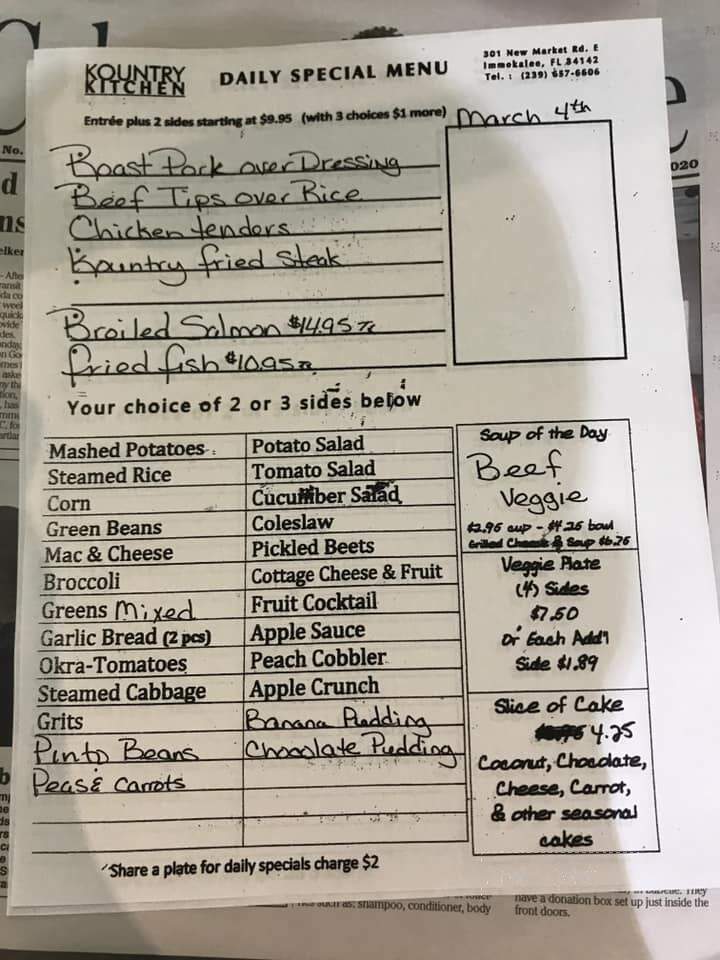 KOUNTRY
KITCHEN
DAILY SPECIAL MENU
301 New Market Rd. E
Immokalee, FL 34142
Tel. : (239) 657-6606
Entrée plus 2 sides starting at $9.95 (with 3 choices $1 more)
March 4th
Roast Pork over Dressing
Beef Tips over Rice
Chicken tenders
Kountry fried Steak
Broiled Salmon $14.95
fried fish $10.95
Your choice of 2 or 3 sides below
Mashed Potatoes
Steamed Rice
Corn
Green Beans
Mac & Cheese
Broccoli
Greens Mixed
Garlic Bread (2 pcs)
Okra-Tomatoes
Steamed Cabbage
Grits
Pinto Beans
Peas & Carrots
Potato Salad
Tomato Salad
Cucumber Salad
Coleslaw
Pickled Beets
Cottage Cheese & Fruit
Fruit Cocktail
Apple Sauce
Peach Cobbler
Apple Crunch
Banana Pudding
Chocolate Pudding
Soup of the Day
Beef
Veggie
$2.95 cup - $4.25 bowl
Grilled Cheese & Soup $6.75
Veggie Plate
(4) Sides
$7.50
Or Each Add'l
Side $1.89
Slice of Cake
4.25
Coconut, Chocolate,
Cheese, Carrot,
& other seasonal
cakes
Share a plate for daily specials charge $2
No.
020
shampoo, conditioner, body
have a donation box set up just inside the
front doors.